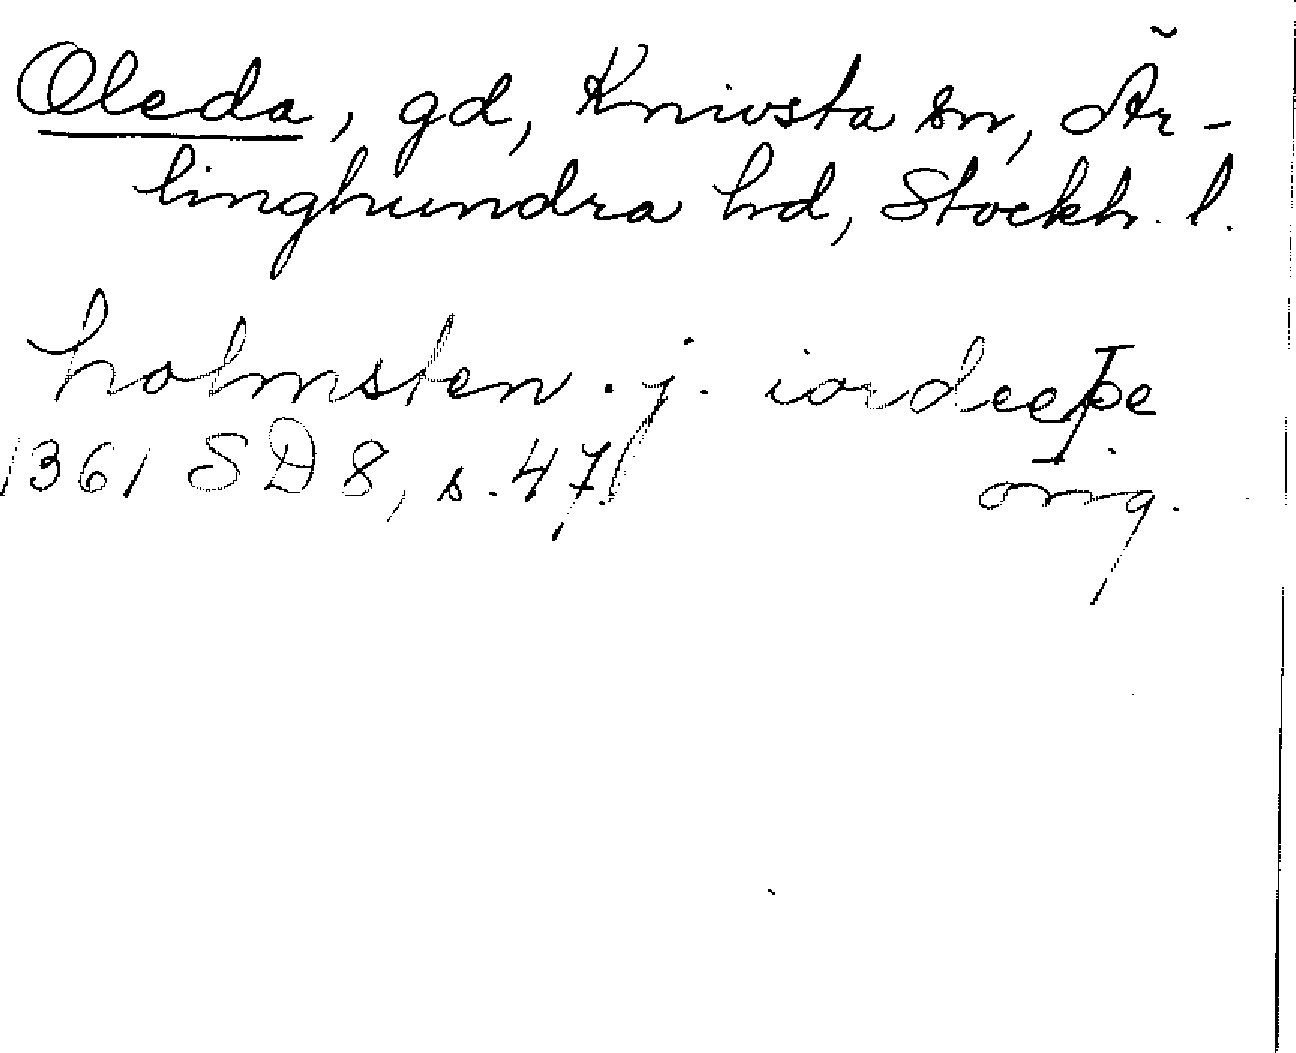 Oleda, gd, Knivsta sn, Är-
linghundra hd, Stockh. l.
holmsten . j . iordee
1361 SD 8, s. 47. orig.